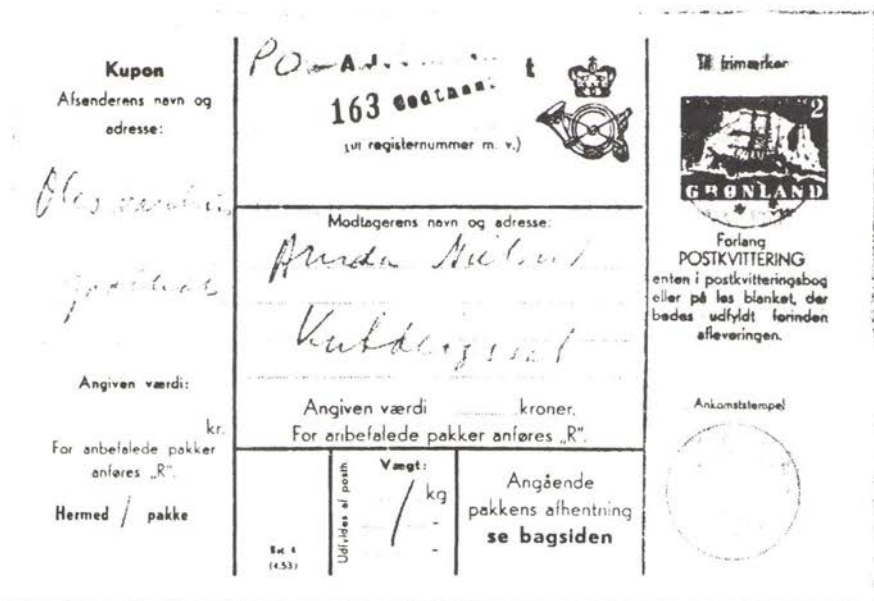 Kupon
Afsenderens navn og
adresse:
Godthåb
Angiven værdi:
kr.
For anbefalede pakker
anføres „R".
Hermed / pakke
PO-
163 Godthaab
(til registernummer m. v.)
Modtagerens navn og adresse:
Angiven værdi kroner.
For anbefalede pakker anføres „R".
(4.53)
Udfyldes af posth.
Vægt:
1 kg
-
-
Angående
pakkens afhentning
se bagsiden
Til frimærker
2
GRØNLAND
Forlang
POSTKVITTERING
enten i postkvitteringsbog
eller på løs blanket, der
bedes udfyldt forinden
afleveringen.
Ankomststempel